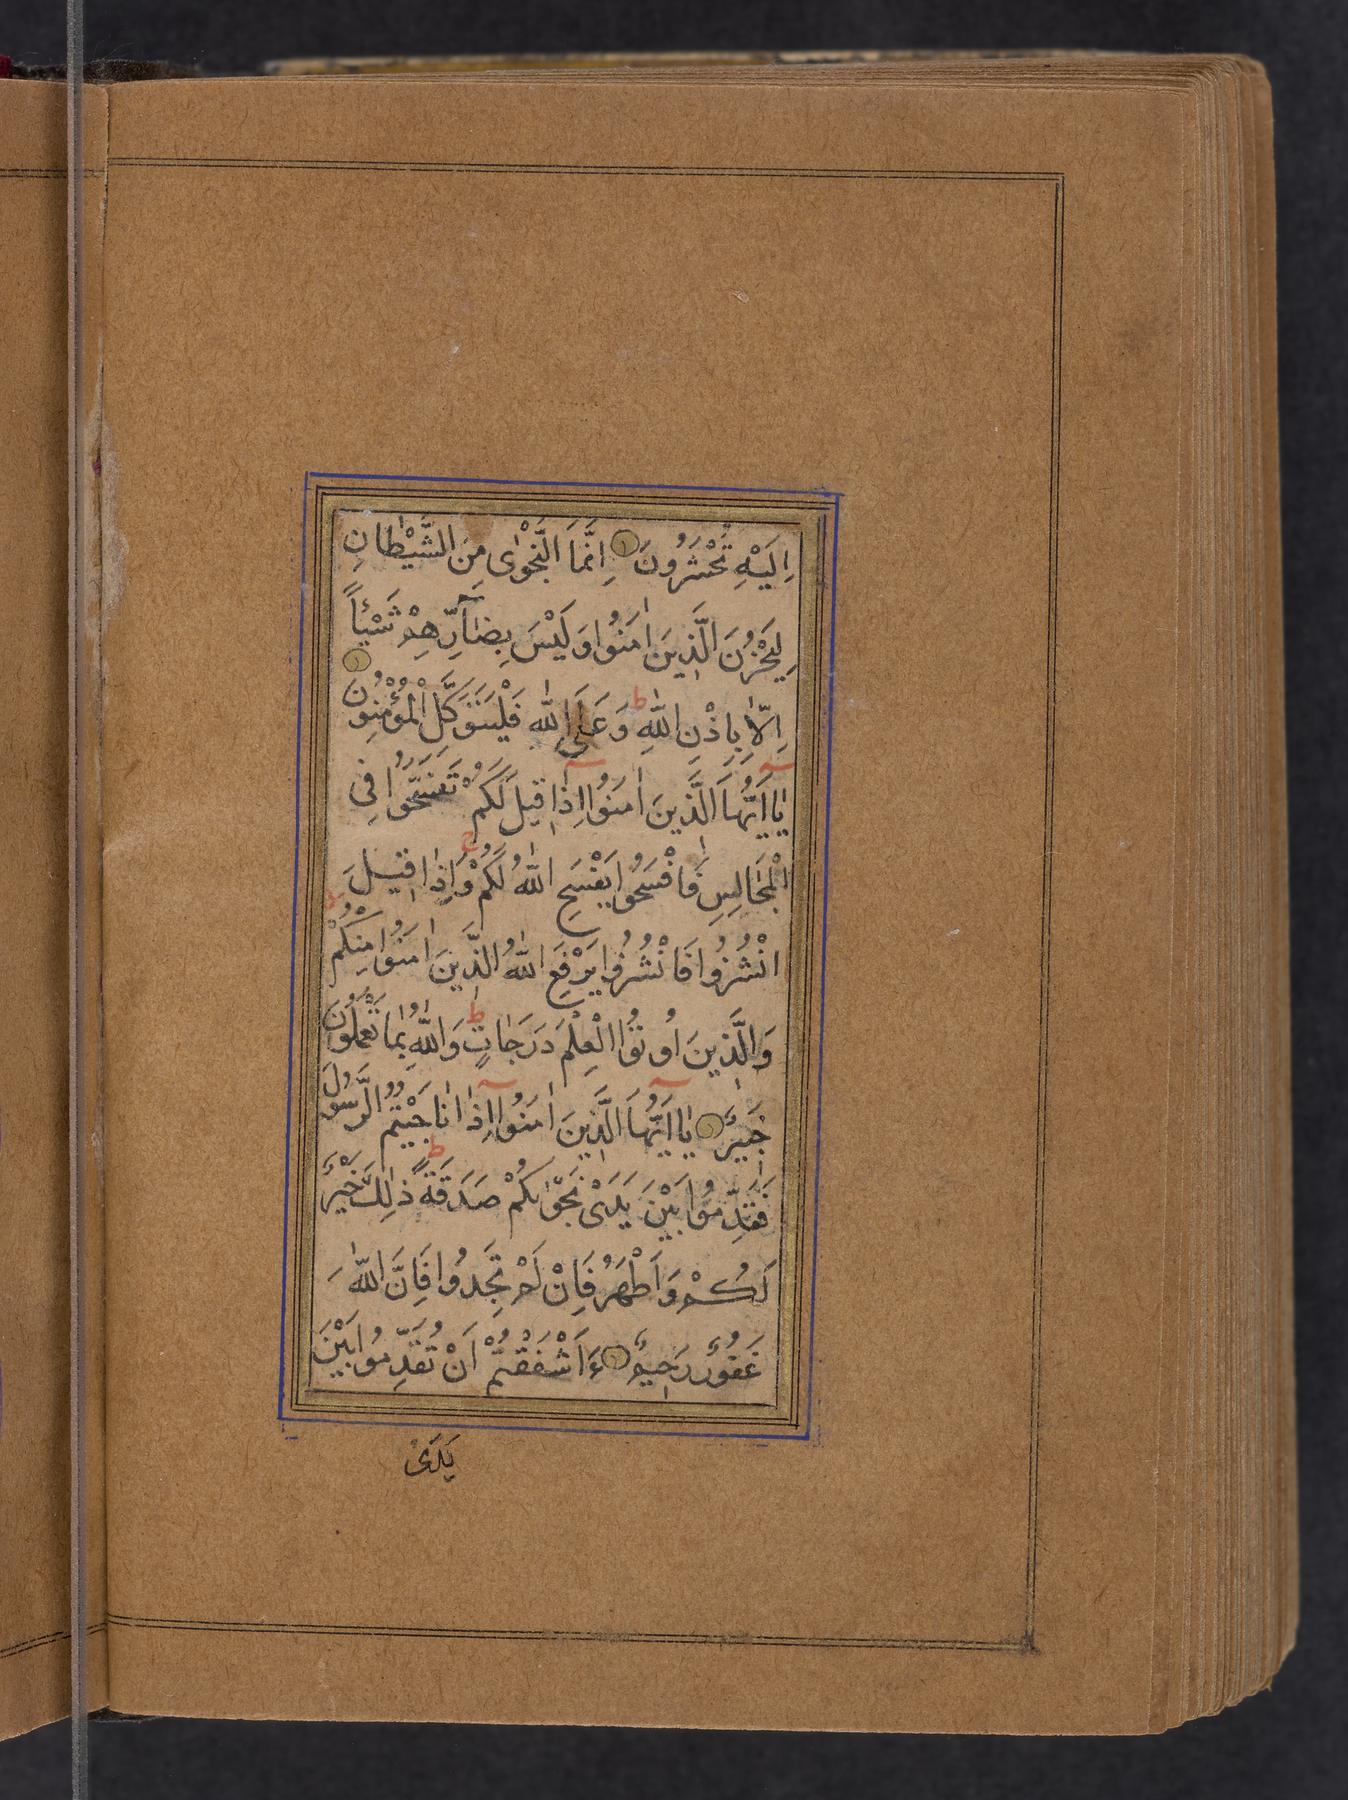 اِلَيْهِ تُحْشَرُونَ اِنَّمَا النَّجْوٰى مِنَ الشَّيْطَانِ
لِيَحْزُنَ الَّذِينَ اٰمَنُوا وَلَيْسَ بِضَآرِّهِمْ شَيْئًا
اِلَّا بِاِذْنِ اللّٰهِ ط وَعَلَى اللّٰهِ فَلْيَتَوَكَّلِ الْمُؤْمِنُونَ
يٰٓا اَيُّهَا الَّذِينَ اٰمَنُوٓا اِذَا قِيلَ لَكُمْ تَفَسَّحُوا فِى
الْمَجَالِسِ فَافْسَحُوا يَفْسَحِ اللّٰهُ لَكُمْ ج وَاِذَا قِيلَ
انْشُزُوا فَانْشُزُوا يَرْفَعِ اللّٰهُ الَّذِينَ اٰمَنُوا مِنْكُمْ
وَالَّذِينَ اُوتُوا الْعِلْمَ دَرَجَاتٍ ط وَاللّٰهُ بِمَا تَعْمَلُونَ
خَبِيرٌ يٰٓا اَيُّهَا الَّذِينَ اٰمَنُوٓا اِذَا نَاجَيْتُمُ الرَّسُولَ
فَقَدِّمُوا بَيْنَ يَدَىْ نَجْوٰىكُمْ صَدَقَةً ط ذٰلِكَ خَيْرٌ
لَكُمْ وَاَطْهَرُ فَاِنْ لَمْ تَجِدُوا فَاِنَّ اللّٰهَ
غَفُورٌ رَحِيمٌ ءَاَشْفَقْتُمْ اَنْ تُقَدِّمُوا بَيْنَ
يَدَىْ